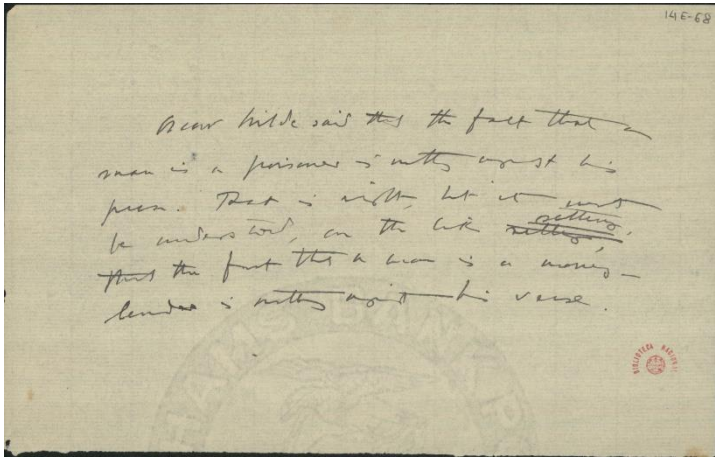 146-68
Oscar Wilde said that the fact that a
man is a poisoner is nothing against his
prose. That is right, but it must
be understood, on the like setting,
that the fact that a man is a money-
lender is nothing against his verse.
BIBLIOTECA NACIONAL